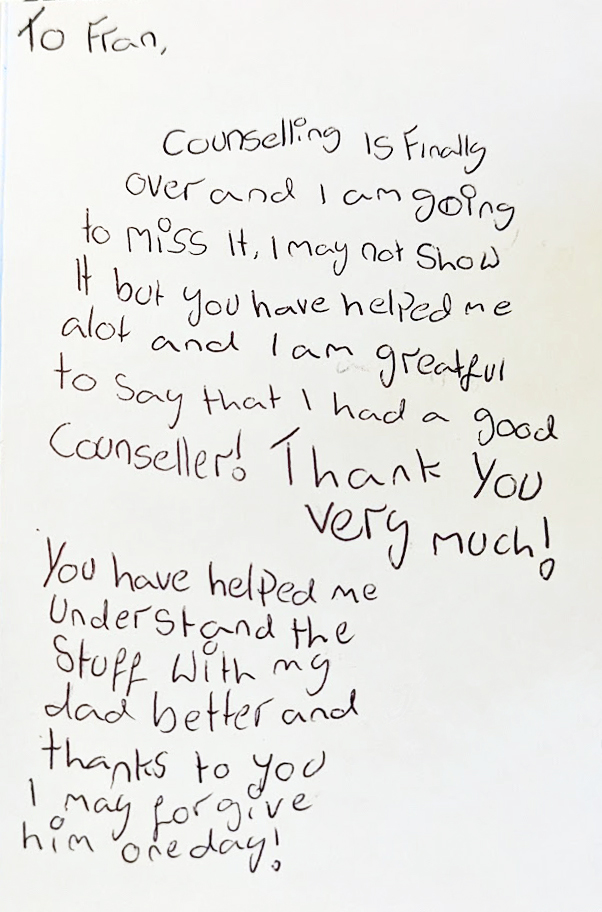 To Fran,
Counselling is Finally
over and I am going
to miss it, I may not show
it but you have helped me
alot and I am greatful
to say that I had a good
Counseller! Thank you
very much!
You have helped me
Understand the
Stuff with my
dad better and
thanks to you
I may forgive
him one day!